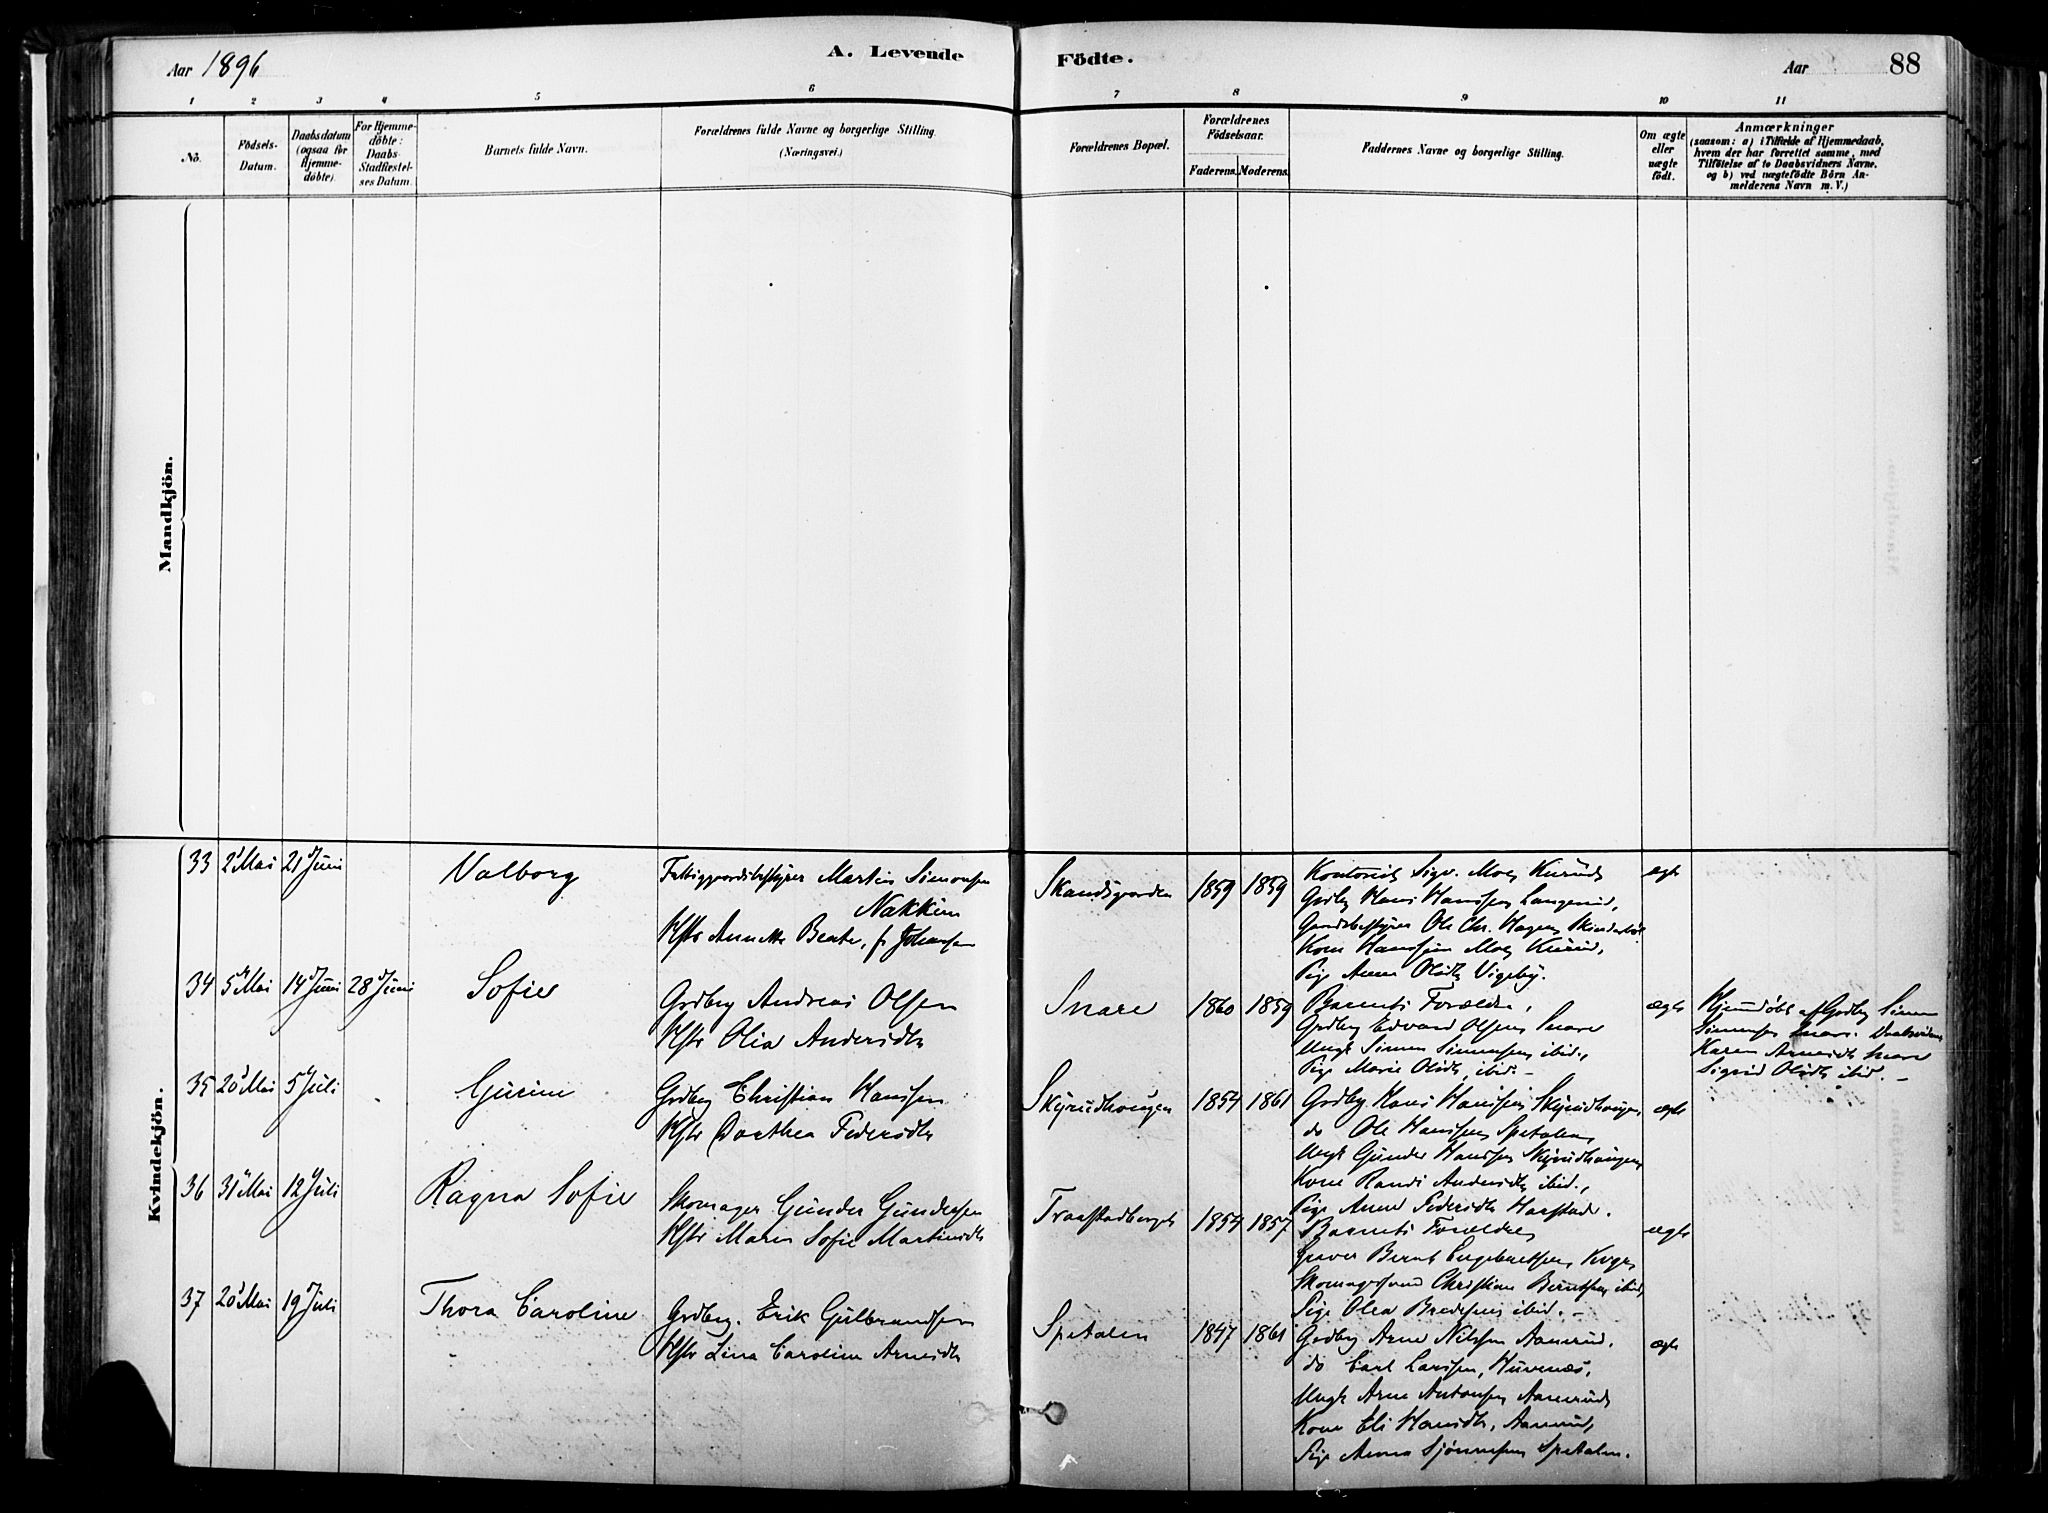 Aar 1896
A. Levende
Födte.
Aar
88
1 2 3 4 5 6 7 8 9 10 11
No.
Födsels-
Datum.
Daabsdatum
(ogsaa for
Hjemme-
döbte).
For Hjemme-
döbte:
Daabs-
Stadfæstel-
ses Datum.
Barnets fulde Navn.
Forældrenes fulde Navne og borgerlige Stilling.
(Næringsvei.)
Forældrenes Bopæl.
Forældrenes
Födselsaar.
Faderens. Moderens.
Faddernes Navne og borgerlige Stilling.
Om ægte
eller
uægte
födt.
Anmærkninger
(saasom: a) i Tilfælde af Hjemmedaab,
hvem der har forrettet samme, med
Tilföielse af to Daabsvidners Navne,
og b) ved uægtefödte Börn An-
melderens Navn m. V.)
Mandkjön.
Kvindekjön.
33 2 Mai 21 Juni
Valborg
Fattiggaardsbestyrer Martin Simonsen
Nakkim
Hstr Annette Beate, f. Johansen
Skandsgaarden 1859 1859
Kontorist Sigv. Moe, Knirud
Grdbr Hans Hanssen
Gaardsbestyrer Ole Chr. Hagen
Kone Hanssine Moe, Knirud,
Pige Anne Olsdtr Vigeby.
ægte
34 5 Mai 14 Juni 28 Juni
Sofie
Grdbrg Andreas Olsen
Hstr Olia Andersdtr
Snare 1860 1859
Barnets Forældre,
Grdbrg Edvard Olsen, Snare
Ungk Simen Simensen, ibid.,
Pige Marie Olsdtr, ibid. -
ægte
Hjemdøbt af Grdbrg Simen
Simensen Snare. Daabsvidner
Karen Arnesdtr Snare
Sigrid Olsdtr ibid. -
35 20 Mai 5 Juli
Gurine
Grdbrg Christian Hanssen
Hstr Dorthea Pedersdtr
Skyrudhougen 1854 1861
Grdbrg. Hans Hanssen, Skyrudhougen
do Ole Hanssen, Spetalen,
Ungk Gunder Hanssen Skyrudhougen,
Kone Randi Andersdtr ibid.,
Pige Anne Pedersdtr Harstad.
ægte
36 31 Mai 12 Juli
Ragna Sofie
Skomager Gunder Gundersen
Hstr Maren Sofie Martinsdtr
Traastadberget 1854 1857
Barnets Forældre,
Graver Bernt Engebretsen,
Skomagersvend Christian Berntsen, ibid,
Pige Olea Bredesen, ibid. -
ægte
37 20 Mai 19 Juli
Thora Caroline
Grdbrg. Erik Gulbrandsen
Hstr Lina Caroline Arnesdtr
Spetalen 1847 1861
Grdbrg Arne Nilssen Aamrud.
do Carl Larssen, Huvenæs,
Ungk Arne Antonsen Aamrud,
Kone Eli Hansdtr, Aamrud,
Pige Anna Sjønnesen Spetalen.
ægte